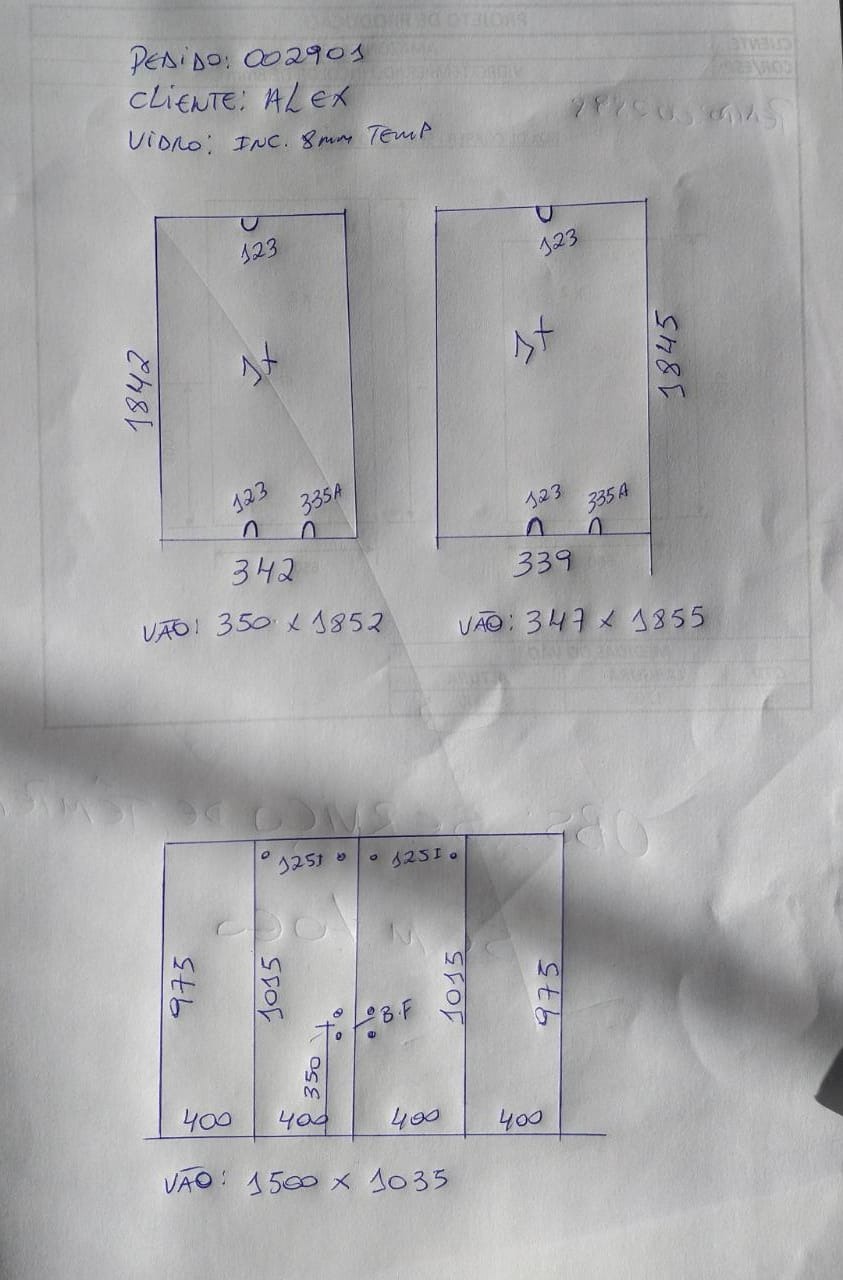 PEDIDO: 002901
CLIENTE: ALEX
VIDRO: INC. 8mm TEMP
123
1842
123
335A
342
VÃO: 350 x 1852
123
1845
123
335A
339
VÃO: 347 x 1855
125I
125I
975
1015
1015
975
B.F
350
400
400
400
400
VÃO: 1500 x 1035